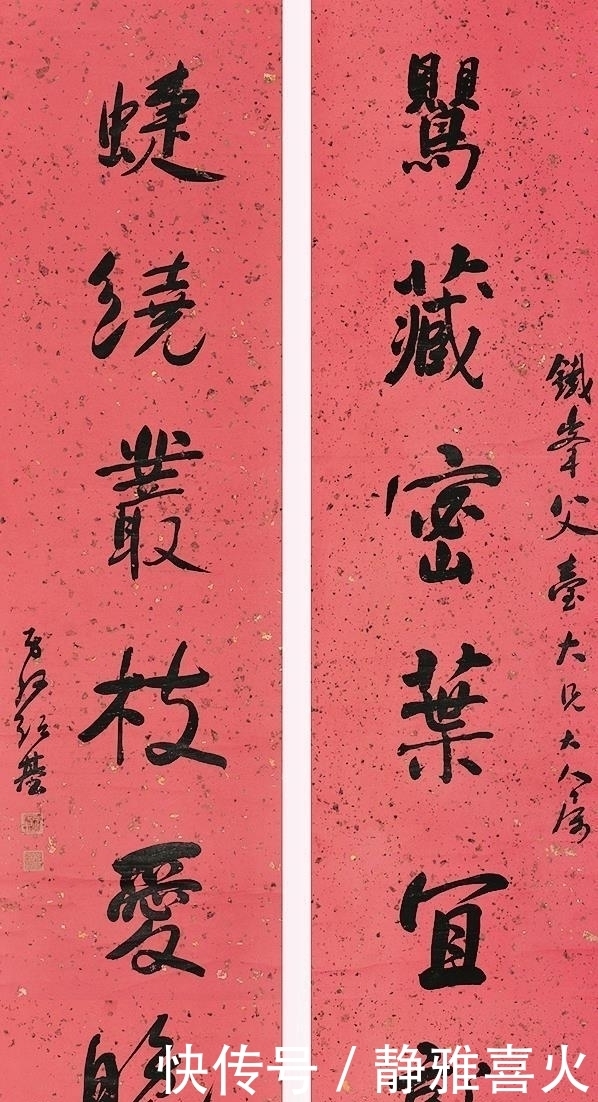 鐵峯父臺大兄大人屬
鸎藏密葉宜
蜨繞叢枝愛
子貞何紹基
快传号 / 静雅喜火